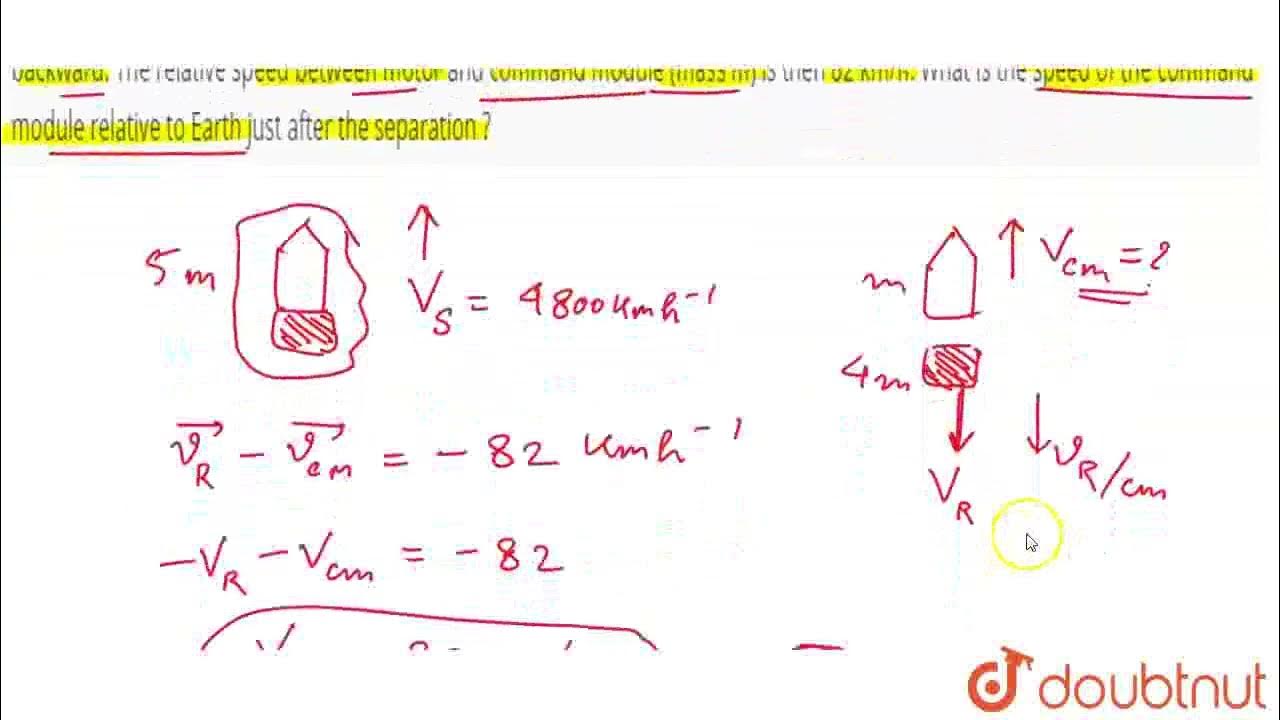 backward. The relative speed between motor and command module (mass m) is then 82 km/h. What is the speed of the command
module relative to Earth just after the separation ?
5 m
V_S = 4800 kmh⁻¹
m
V_cm = ?
4m
V_R
v_R/cm
v_R - v_cm = - 82 kmh⁻¹
-V_R - V_cm = - 82
doubtnut